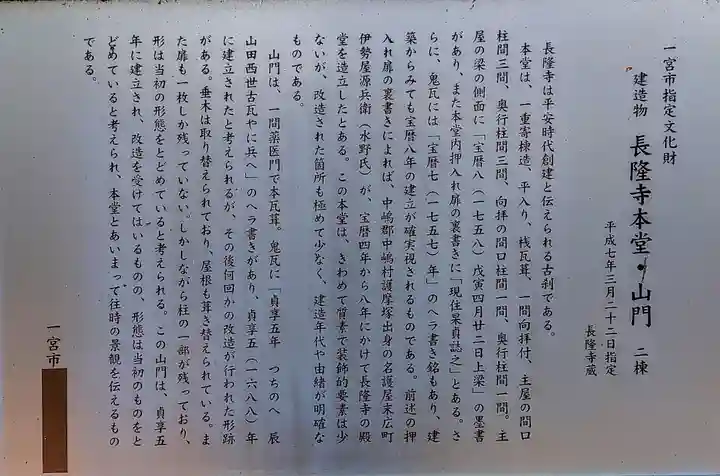 一宮市指定文化財
建造物 長隆寺本堂・山門 二棟
平成七年三月二十二日指定
長隆寺蔵
長隆寺は平安時代創建と伝えられる古刹である。
本堂は、一重寄棟造、平入り、桟瓦葺、一間向拝付、主屋の間口
柱間三間、奥行柱間三間、向拝の間口柱間一間、奥行柱間一間。主
屋の梁の側面に「宝暦八(一七五八)戊寅四月廿二日上梁」の墨書
があり、また本堂内押入れ扉の裏書きに「現住果貞誌之」とある。さ
らに、鬼瓦には「宝暦七(一七五七)年」のヘラ書き銘もあり、建
築からみても宝暦八年の建立が確実視されるものである。前述の押
入れ扉の裏書きによれば、中嶋郡中嶋村護摩塚出身の名護屋末広町
伊勢屋源兵衛(水野氏)が、宝暦四年から八年にかけて長隆寺の殿
堂を造立したとある。この本堂は、きわめて質素で装飾的要素は少
ないが、改造された箇所も極めて少なく、建造年代や由緒が明確な
ものである。
山門は、一間薬医門で本瓦葺。鬼瓦に「貞享五年 つちのへ 辰
山田西世古瓦やに兵へ」のヘラ書きがあり、貞享五(一六八八)年
に建立されたと考えられるが、その後何回かの改造が行われた形跡
がある。垂木は取り替えられており、屋根も葺き替えられている。ま
た扉も一枚しか残っていない。しかしながら柱の一部が残っており、
形は当初の形態をとどめていると考えられる。この山門は、貞享五
年に建立され、改造を受けてはいるものの、形態は当初のものをと
どめていると考えられ、本堂とあいまって往時の景観を伝えるもの
である。
一宮市